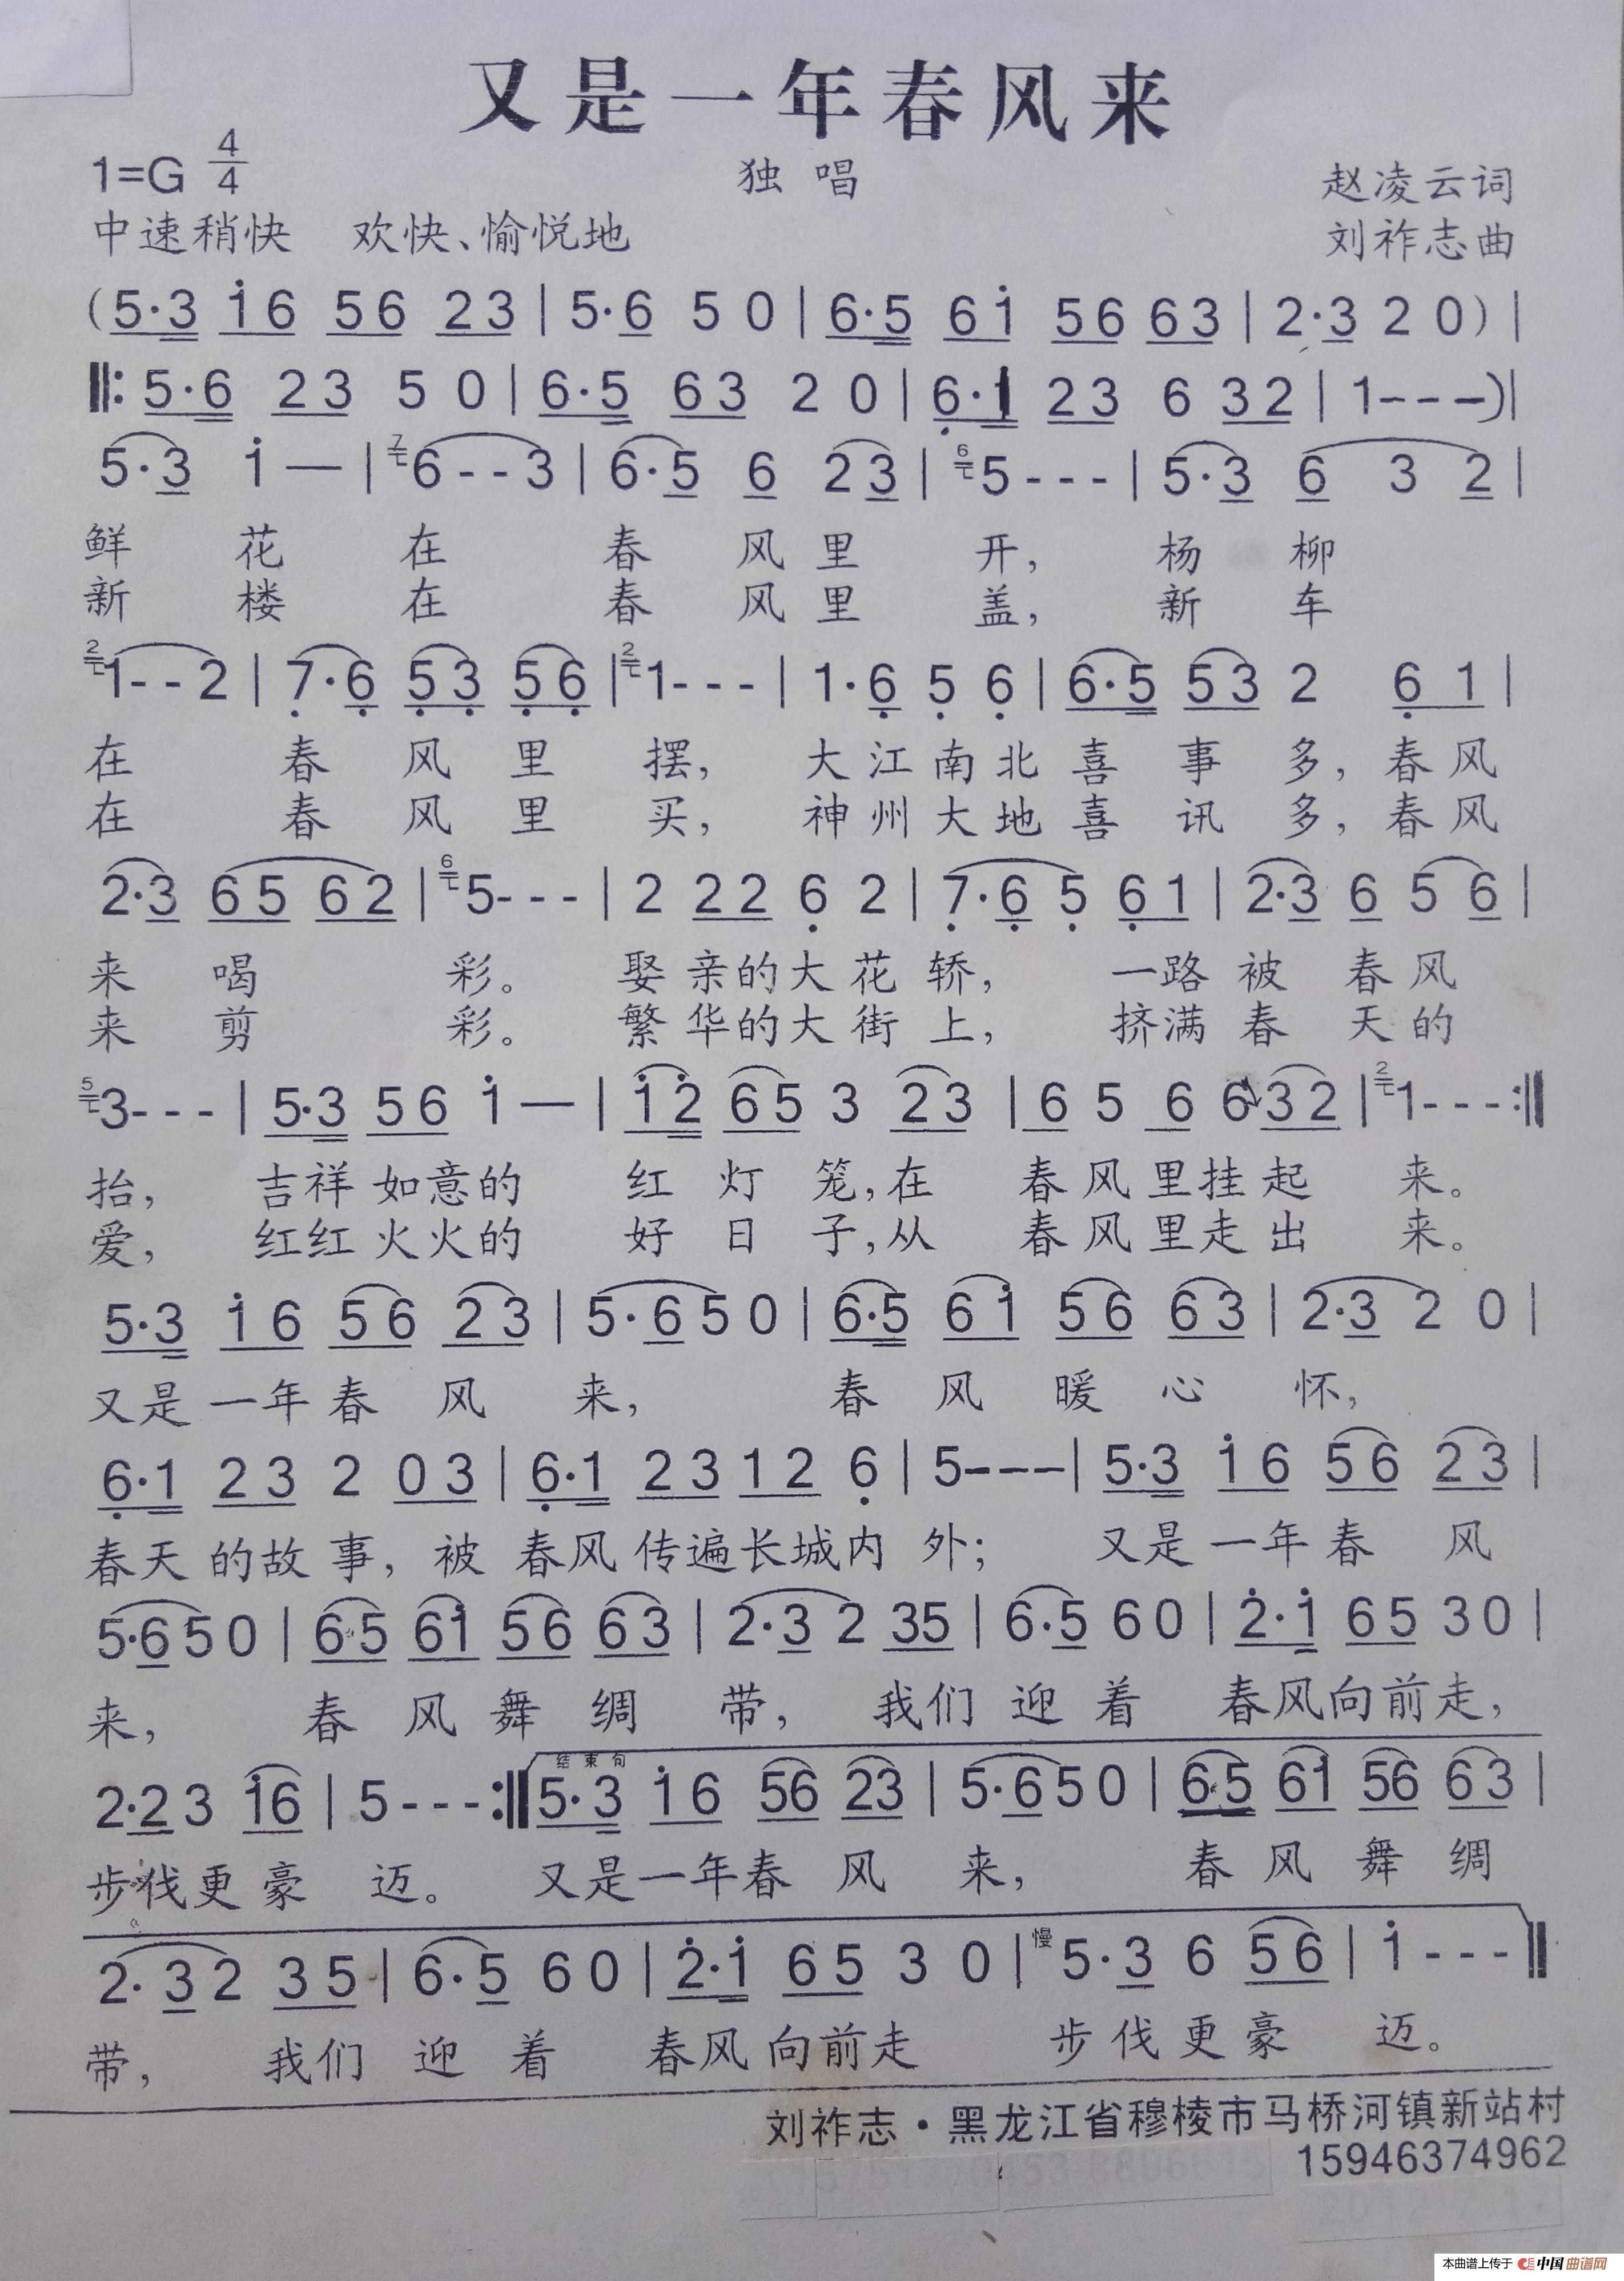 又是一年春风来
1=G 4/4 独唱 赵凌云词
中速稍快 欢快、愉悦地 刘祚志曲
(5·3 i6 56 23 | 5·6 5 0 | 6·5 6i 56 63 | 2·3 2 0) |
‖: 5·6 23 5 0 | 6·5 63 2 0 | 6·1 23 6 32 | 1---)|
5·3 i — | 7 6--3 | 6·5 6 23 | 6 5--- | 5·3 6 3 2 |
鲜 花 在 春 风 里 开, 杨 柳
新 楼 在 春 风 里 盖, 新 车
2 1--2 | 7·6 53 56 | 2 1--- | 1·6 5 6 | 6·5 53 2 6 1 |
在 春 风 里 摆, 大江南北喜 事 多,春风
在 春 风 里 买, 神州大地喜 讯 多,春风
2·3 65 62 | 6 5--- | 2 22 6 2 | 7·6 5 61 | 2·3 6 5 6 |
来 喝 彩。 娶亲的大花轿, 一路被 春风
来 剪 彩。 繁华的大街上, 挤满春 天的
5 3--- | 5·3 56 i — | i2 65 3 23 | 6 5 6 6 32 | 2 1--- :‖
抬, 吉祥如意的 红 灯 笼,在 春风里挂起 来。
爱, 红红火火的 好 日 子,从 春风里走出 来。
5·3 i6 56 23 | 5·6 5 0 | 6·5 6i 56 63 | 2·3 2 0 |
又是一年春 风 来, 春 风 暖 心 怀,
6·1 23 2 03 | 6·1 23 12 6 | 5--- | 5·3 i6 56 23 |
春天的故事,被 春风传遍长城内 外; 又是一年春 风
5·6 5 0 | 6·5 6i 56 63 | 2·3 2 35 | 6·5 6 0 | 2·i 65 3 0 |
来, 春 风 舞 绸 带, 我们 迎 着 春风向前走,
2·2 3 i6 | 5--- :‖ 结束句 5·3 i6 56 23 | 5·6 5 0 | 6·5 6i 56 63 |
步伐更豪 迈。 又是一年春 风 来, 春 风 舞 绸
2·3 2 35 | 6·5 6 0 | 2·i 65 3 0 | 慢 5·3 6 56 | i---‖
带, 我们 迎 着 春风向前走 步伐更豪 迈。
刘祚志·黑龙江省穆棱市马桥河镇新站村
15946374962
本曲谱上传于 中国曲谱网